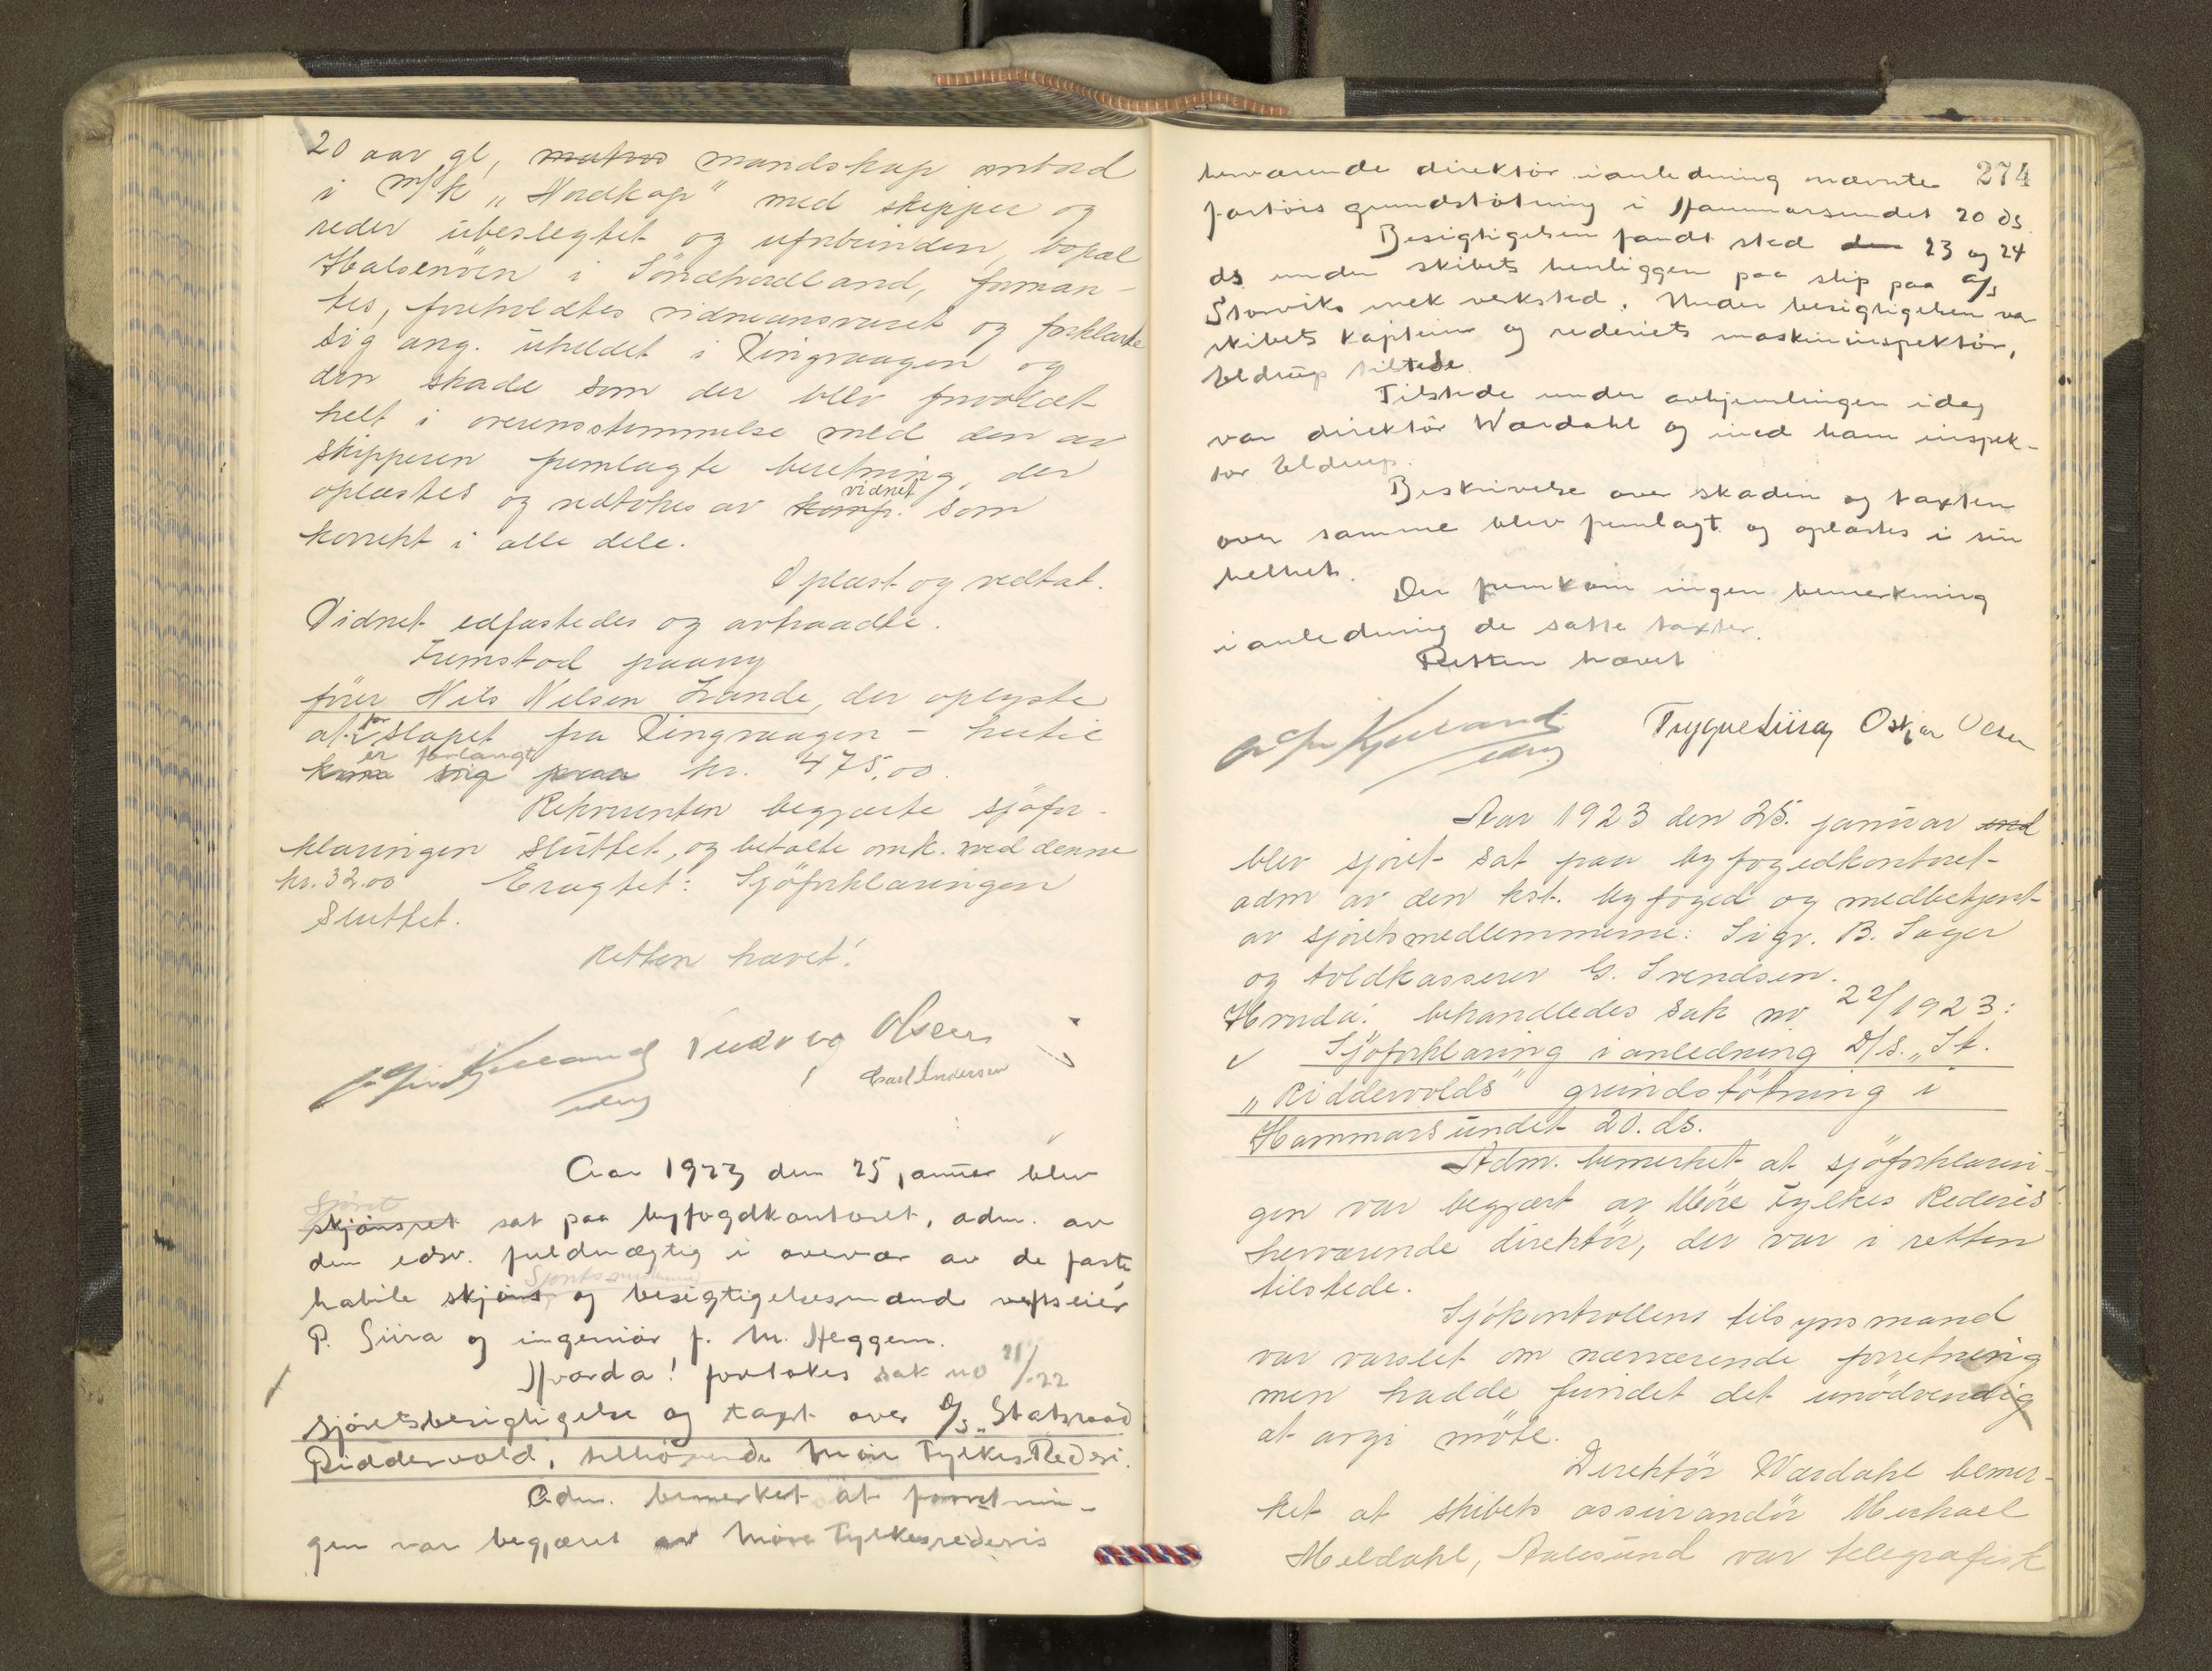 20 aar gl, mandskap ombord
i m/k "Nordkap" med skipper og
reder ubeslegtet og uforbunden, bopæl
Halsenöen i Söndhordland, forman-
tes, foreholdtes vidneansvaret og forklarte
sig ang. uheldet i Vingvaagen og
den skade som der blev forvoldt
helt i overensstemmelse med den av
skipperen fremlagte beretning, der
oplæstes og vedtokes av komp. vidnet som
korrekt i alle dele.
Oplæst og vedtat.
Vidnet edfæstedes og avtraadte.
Fremstod paany
förer Nils Nilsen Lande, der oplyste
at for slæpet fra Vingvaagen - hertil
er forlangt kr. 475,00.
Rekvirenten begjærte sjöfor-
klaringen sluttet, og betalte omk. med denne
kr. 32.00 Eragtet: Sjöforklaringen
sluttet.
Retten hævet!
Ludvig Olsen
Carl Andersen
Aar 1923 den 25 januar blev
Sjöret
skjönsret sat paa byfogdkontoret, adm. av
den edsv. fuldmægtig i overvær av de faste
habile skjöns og besigtigelsesmænd verftseier
P. Liira og ingeniör J. M. Heggem.
Hvorda! foretokes sak no 21/22
Sjöretsbesigtigelse og taxt over D/S "Statsraad
Riddervold", tilhörende Möre Fylkes Rederi.
Adm. bemerket at forretnin-
gen var begjæret av Möre Fylkesrederis
274
herværende direktör i anledning nævnte
fartöis grundstötning i Hammarsundet 20 ds.
Besigtigelsen fandt sted den 23 og 24
ds under skibets henliggen paa slip paa A/S
Storviks mek verksted. Under besigtigelsen var
skibets kaptein og rederiets maskininspektör,
Eldrup tilstede.
Tilstede under avhjemlingen idag
var direktör Wærdahl og med ham inspek-
tör Eldrup.
Beskrivelse over skaden og taxten
over samme blev fremlagt og oplæstes i sin
helhet.
Der fremkom ingen bemerkning
i anledning de satte taxter.
Retten hævet
Trygve Liira Oskar Olsen
Aar 1923 den 25. januar
blev sjöret sat paa byfogedkontoret
adm av den kst. byfoged og medbetjent
av sjöretsmedlemmerne: Sigv. B. Sager
og toldkasserer G. Svendsen.
Hvorda: behandledes sak nr. 22/1923:
Sjöforklaring i anledning D/S. "St.
"Riddervolds" grundstötning i
Hammarsundet 20. ds.
Adm. bemerket at sjöforklarin-
gen var begjært av Möre Fylkes Rederis
herværende direktör, der var i retten
tilstede.
Sjökontrollens tilsynsmand
var varslet om nærværende forretning
men hadde fundet det unödvendig
at avgi möte.
Direktör Wærdahl bemer-
ket at skibets assurandör Michael
Meldahl, Aalesund var telegrafisk